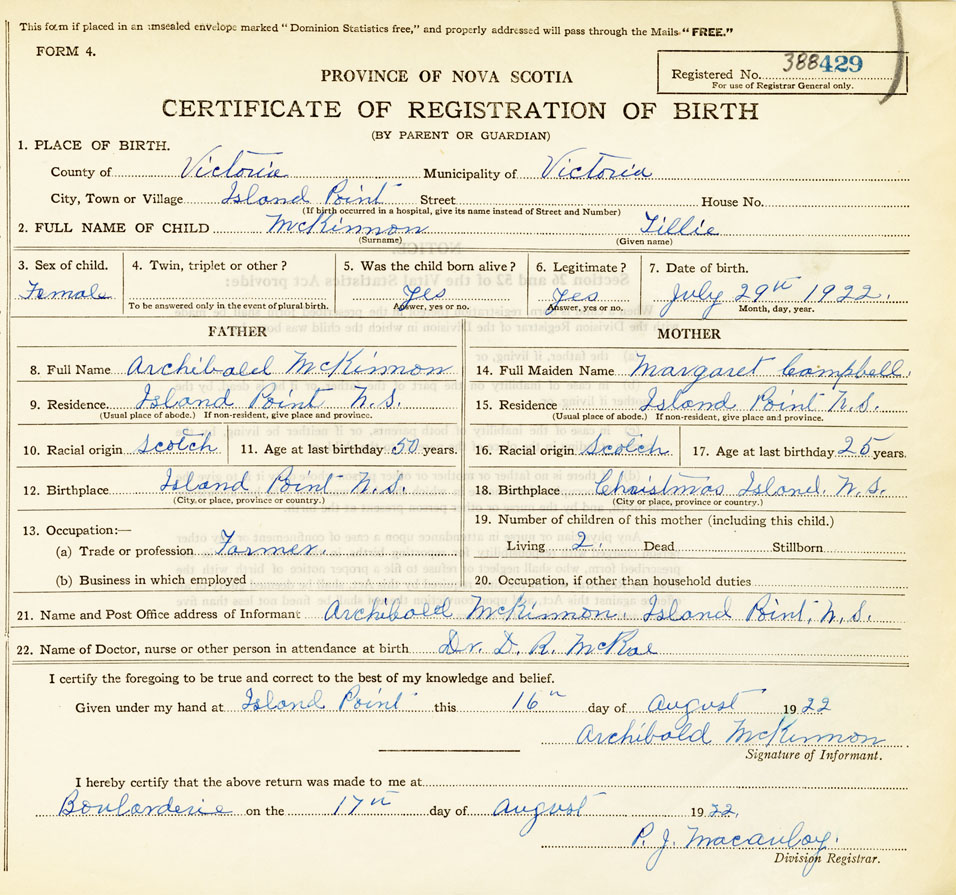 This form if placed in an unsealed envelope marked "Dominion Statistics free," and properly addressed will pass through the Mails "FREE."
FORM 4.
Registered No. 388429
For use of Registrar General only.
PROVINCE OF NOVA SCOTIA
CERTIFICATE OF REGISTRATION OF BIRTH
(BY PARENT OR GUARDIAN)
1. PLACE OF BIRTH.
County of Victoria Municipality of Victoria
City, Town or Village Island Point Street House No.
(If birth occurred in a hospital, give its name instead of Street and Number)
2. FULL NAME OF CHILD McKinnon Tillie
(Surname) (Given name)
3. Sex of child. 4. Twin, triplet or other? 5. Was the child born alive? 6. Legitimate? 7. Date of birth.
Female Yes Yes July 29th 1922.
To be answered only in the event of plural birth. Answer, yes or no. Answer, yes or no. Month, day, year.
FATHER MOTHER
8. Full Name Archibald McKinnon 14. Full Maiden Name Margaret Campbell.
9. Residence. Island Point N.S. 15. Residence Island Point N.S.
(Usual place of abode.) If non-resident, give place and province. (Usual place of abode.) If non-resident, give place and province.
10. Racial origin Scotch 11. Age at last birthday 50 years. 16. Racial origin Scotch 17. Age at last birthday 25 years.
12. Birthplace Island Point N.S. 18. Birthplace Christmas Island. N.S.
(City or place, province or country.) (City or place, province or country.)
13. Occupation:— 19. Number of children of this mother (including this child.)
(a) Trade or profession Farmer. Living 2. Dead Stillborn
(b) Business in which employed 20. Occupation, if other than household duties
21. Name and Post Office address of Informant Archibald McKinnon. Island Point, N.S.
22. Name of Doctor, nurse or other person in attendance at birth Dr. D. R. McRae
I certify the foregoing to be true and correct to the best of my knowledge and belief.
Given under my hand at Island Point this 16th day of August 1922
Archibald McKinnon
Signature of Informant.
I hereby certify that the above return was made to me at
Boularderie on the 17th day of August 1922.
P. J. Macaulay.
Division Registrar.